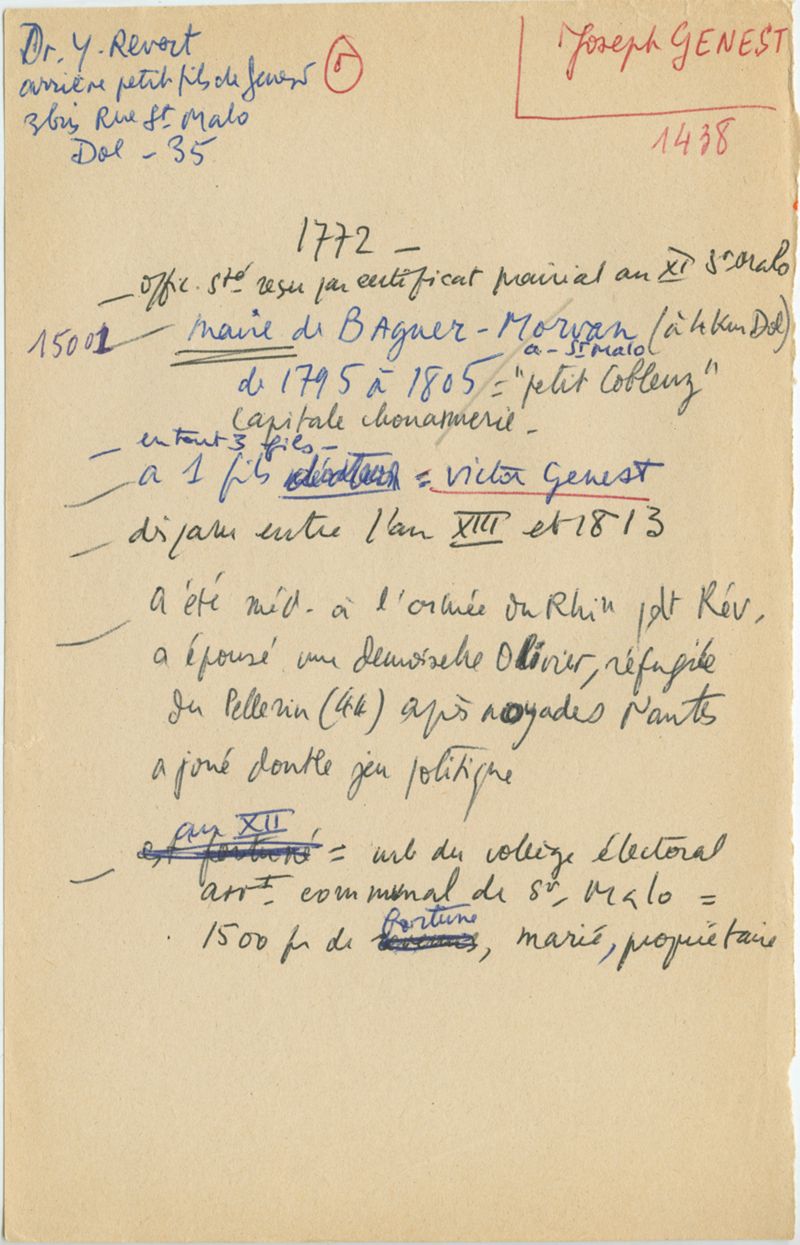 Dr. Y. Revert
arrière petit fils de Genest
3bis Rue St Malo
Dol - 35
Joseph GENEST
1438
1772 -
offic. sté reçu par certificat prairial an XI St Malo
15001
Maire de BAguer-Morvan (à 4 Km Dol)
a - St Malo
de 1795 à 1805 = "petit Coblenz"
Capitale chouannerie -
en tout 3 fils -
a 1 fils = Victor Genest
disparu entre l'an XIII et 1813
a été méd. à l'armée du Rhin pdt Rév.
a épousé une demoiselle Olivier, réfugiée
du Pellerin (44) après noyades Nantes
a joué double jeu politique
an XII
est fortuné = mb du collège électoral
arrt communal de St Malo =
fortune
1500 fr de revenus, marié, propriétaire